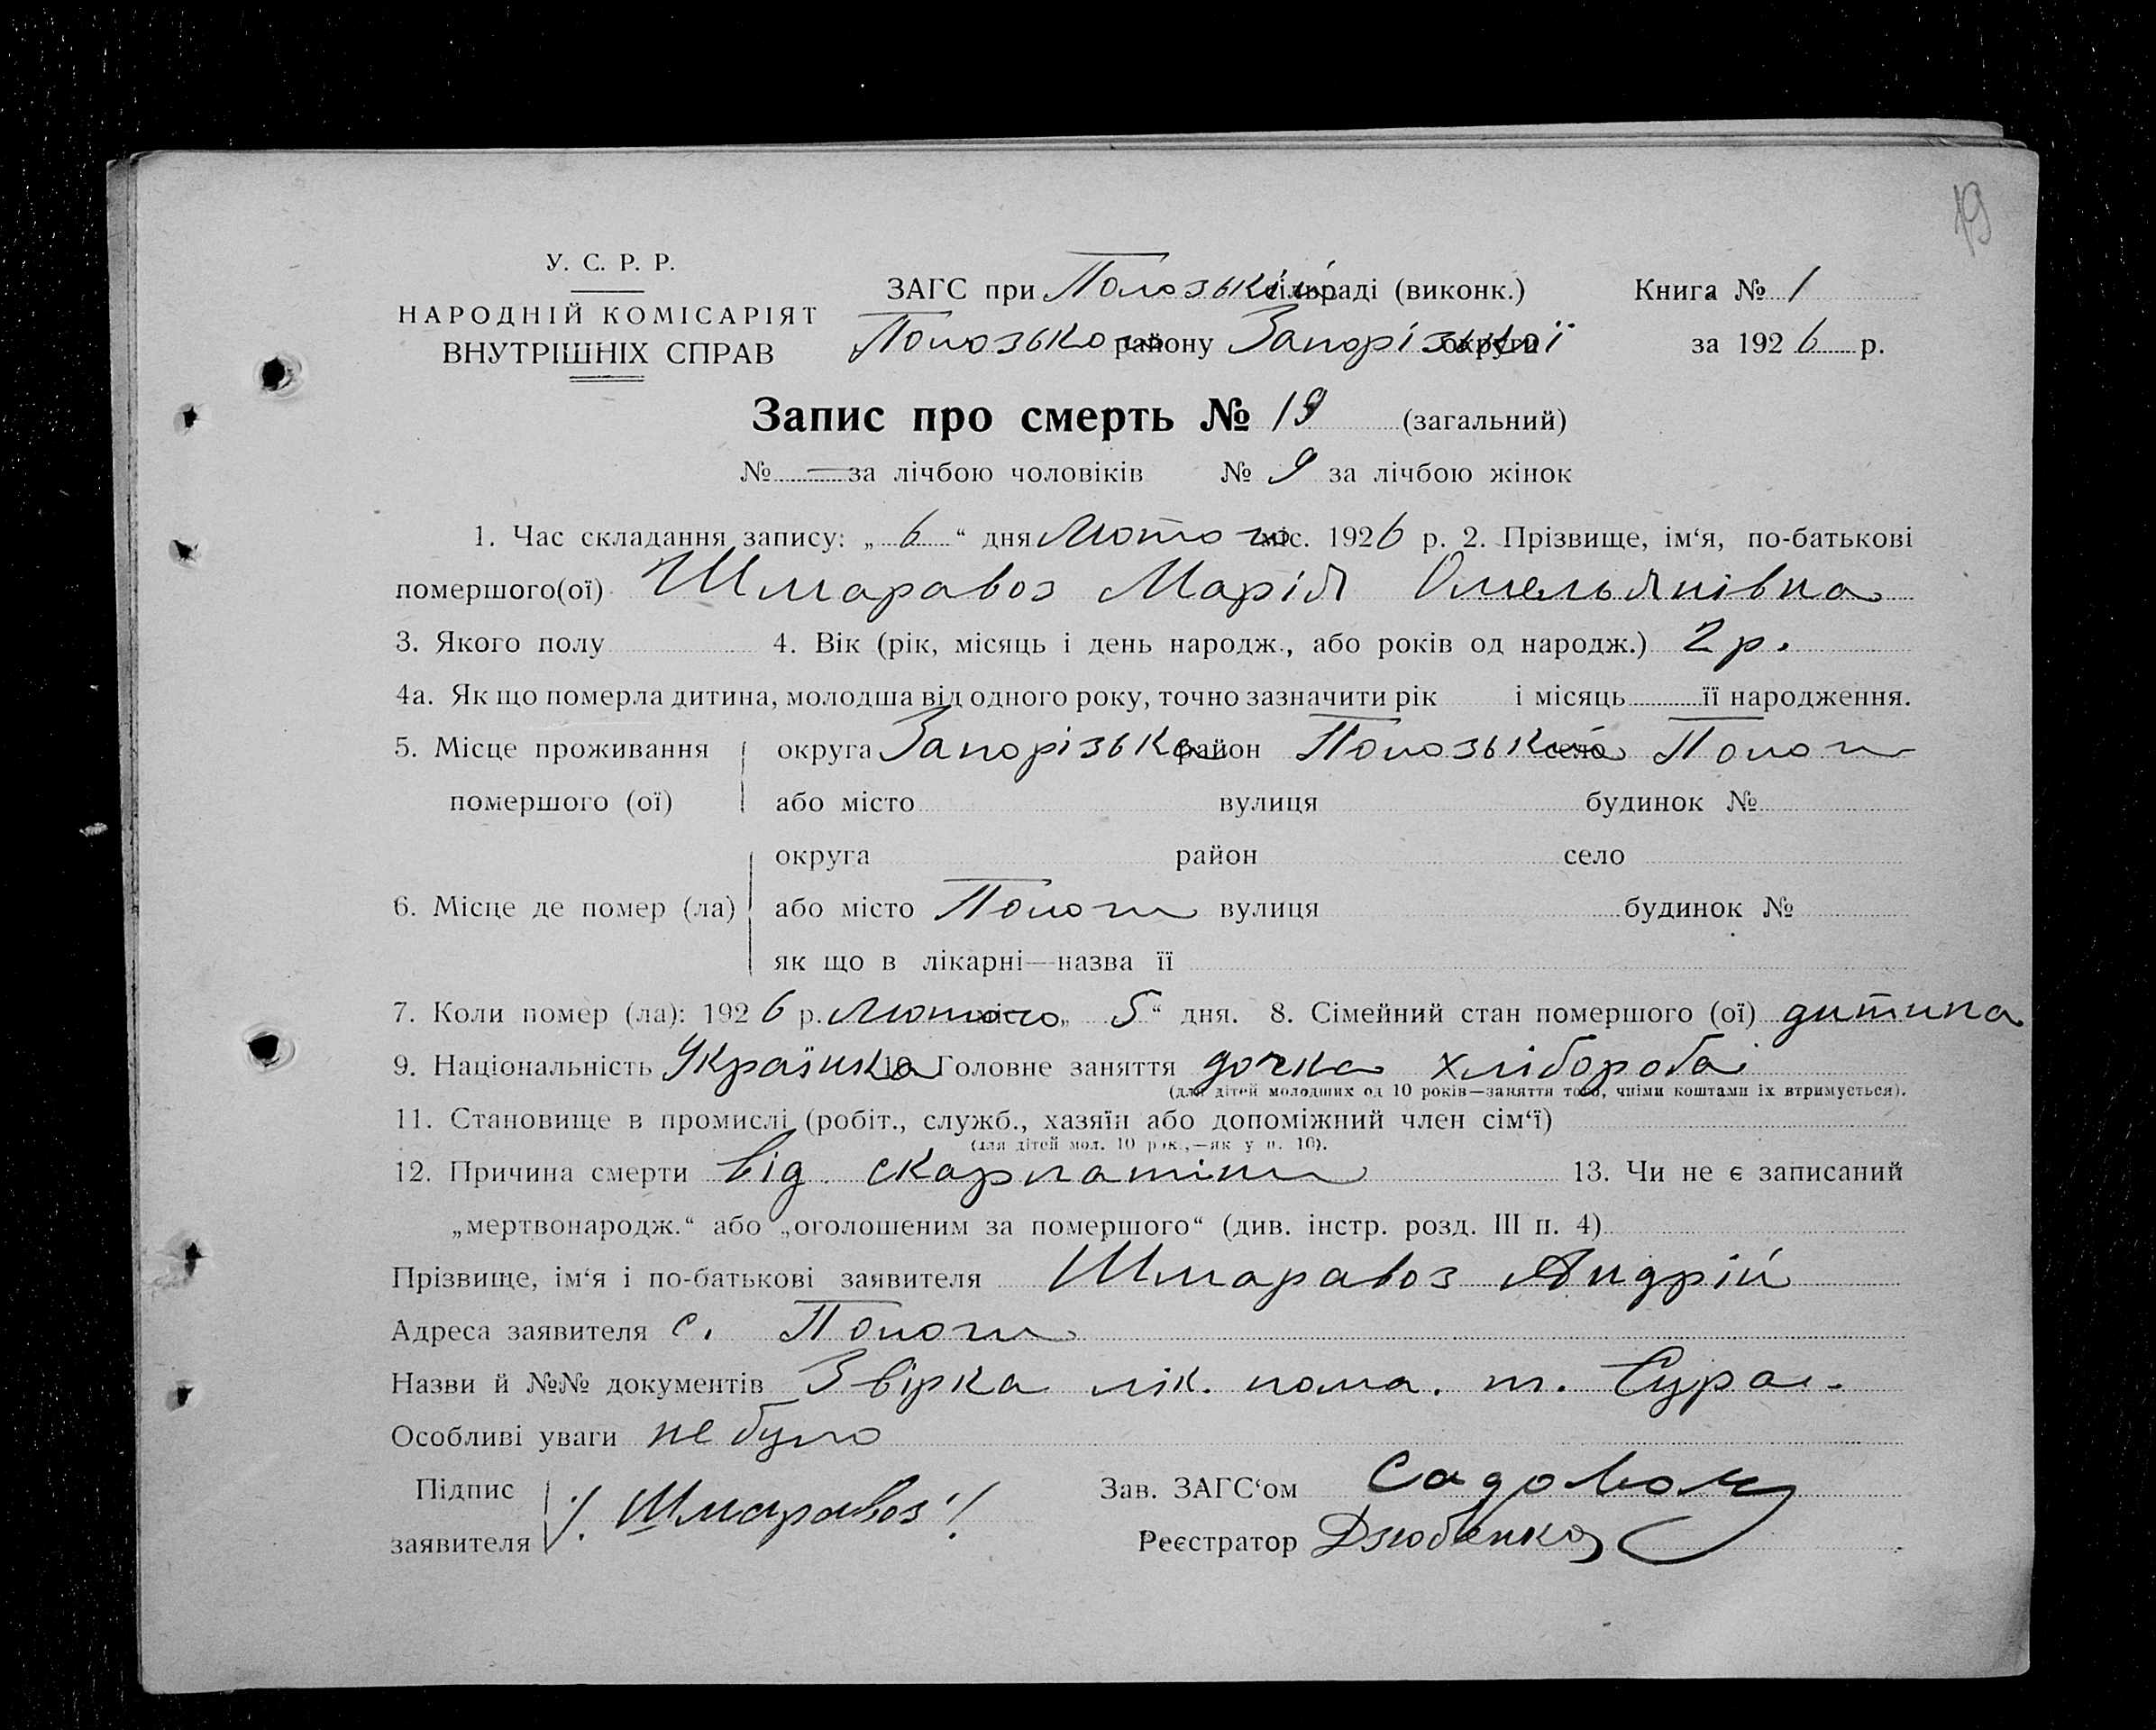 19
У. С. Р. Р.
НАРОДНІЙ КОМІСАРІЯТ
ВНУТРІШНІХ СПРАВ
ЗАГС при Пологській сільраді (виконк.) Книга № 1
Пологського району Запорізької округи за 1926 р.
Запис про смерть № 19 (загальний)
№ — за лічбою чоловіків № 9 за лічбою жінок
1. Час складання запису: „6“ дня Лютого міс. 1926 р. 2. Прізвище, ім‘я, по-батькові
помершого(ої) Шмаравоз Марія Омельянівна
3. Якого полу 4. Вік (рік, місяць і день народж., або років од народж.) 2 р.
4а. Як що померла дитина, молодша від одного року, точно зазначити рік і місяць її народження.
5. Місце проживання округа Запорізька район Пологськ село Пологи
помершого (ої) або місто вулиця будинок №
округа район село
6. Місце де помер (ла) або місто Пологи вулиця будинок №
як що в лікарні—назва її
7. Коли помер (ла): 1926 р. Лютого міс. „5“ дня. 8. Сімейний стан помершого (ої) дитина
9. Національність Українка 10. Головне заняття дочка хлібороба
(для дітей молодших од 10 років—заняття того, чиїми коштами їх втримується).
11. Становище в промислі (робіт., служб., хазяїн або допоміжний член сім‘ї)
(для дітей мол. 10 рок.,—як у п. 10).
12. Причина смерти від скарлатіни 13. Чи не є записаний
„мертвонародж.“ або „оголошеним за помершого“ (див. інстр. розд. III п. 4)
Прізвище, ім‘я і по-батькові заявителя Шмаравоз Андрій
Адреса заявителя с. Пологи
Назви й №№ документів Звірка лік. пома. т.
Особливі уваги не було
Підпис заявителя /. Шмаравоз ./ Зав. ЗАГС‘ом
Реєстратор Дзюбенко